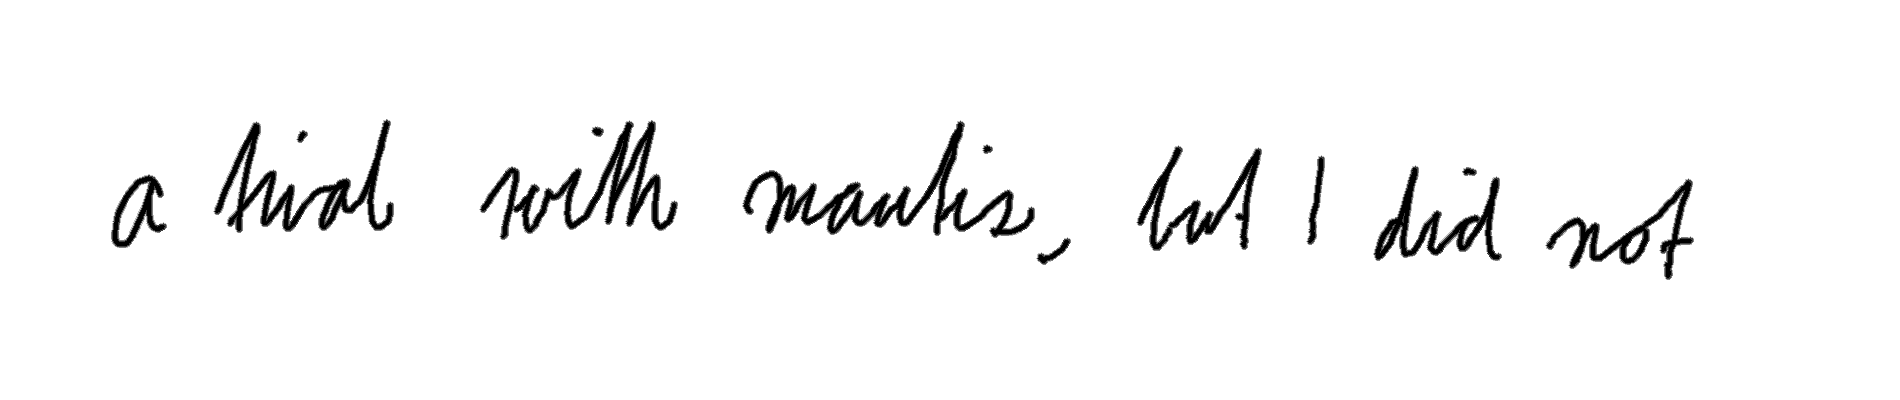 a trial with mantis, but I did not